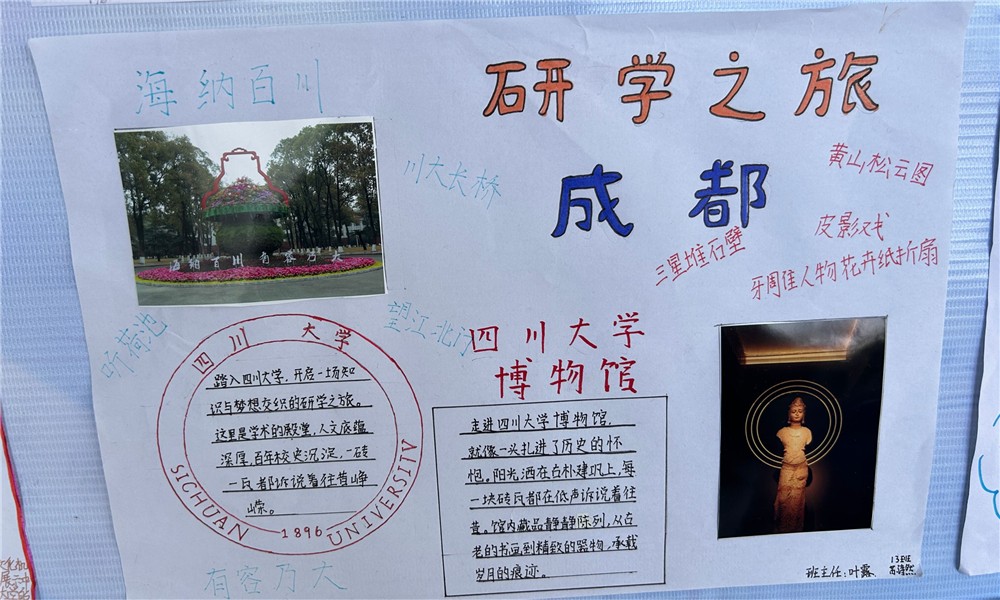 海纳百川
研学之旅
成都
川大长桥
黄山松云图
皮影戏
三星堆石壁
牙周佳人物花卉纸折扇
海纳百川 有容乃大
听荷池
望江北门
四川大学
踏入四川大学,开启一场知
识与梦想交织的研学之旅。
这里是学术的殿堂,人文底蕴
深厚,百年校史沉淀,一砖
一瓦都诉说着往昔峥
嵘。
SICHUAN 1896 UNIVERSITY
有容乃大
四川大学
博物馆
走进四川大学博物馆,
就像一头扎进了历史的怀
抱。阳光洒在古朴建筑上,每
一块砖瓦都在低声诉说着往
昔。馆内藏品静静陈列,从古
老的书画到精致的器物,承载
岁月的痕迹。
13班
班主任:叶露